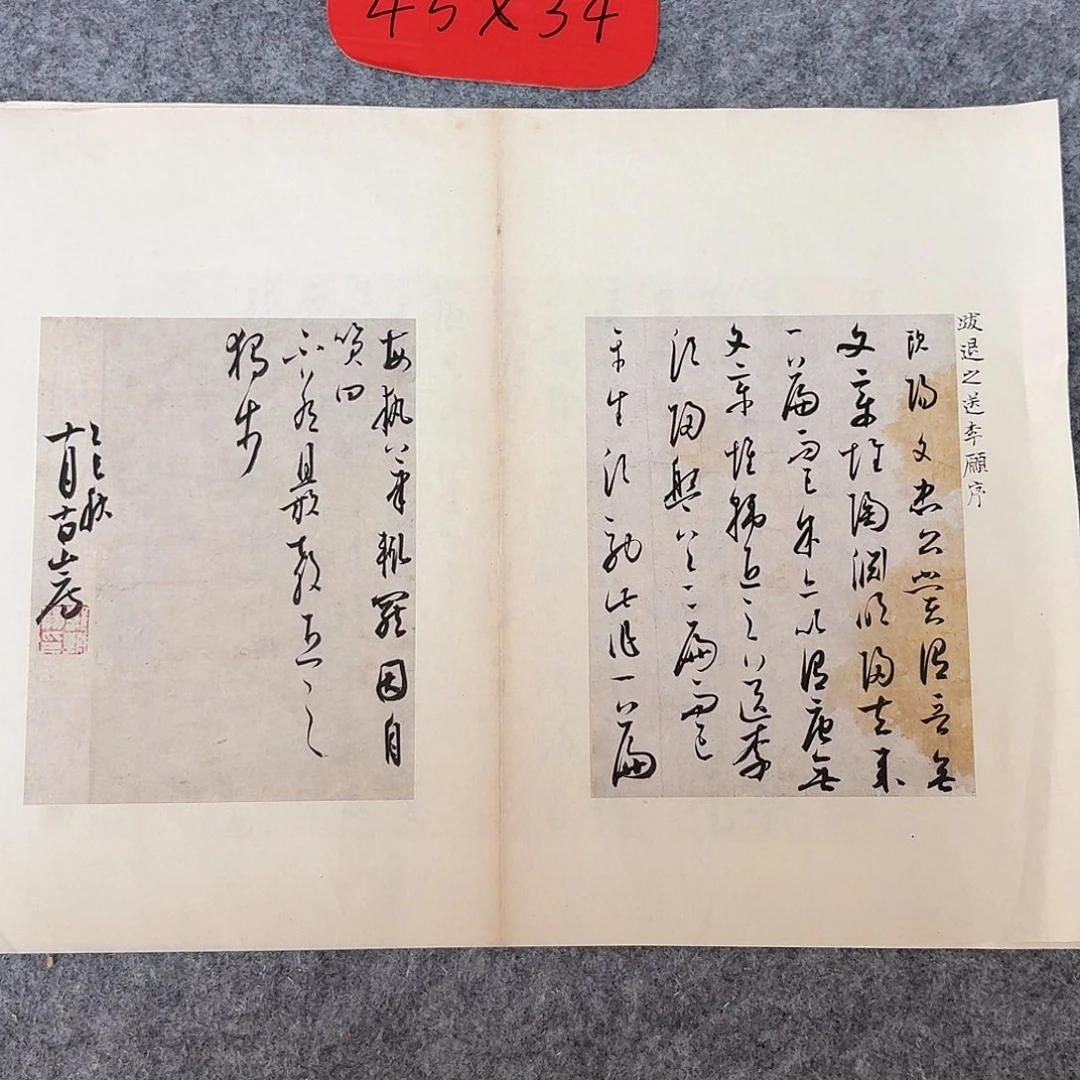 45X34
跋退之送李願序
欧陽文忠公嘗謂晉無
文章惟陶淵明歸去来
一篇而已余亦以謂唐無
文章惟韓退之送李
愿歸盤谷一篇而已
平生愿效此作一篇
每執筆輒罷因自
笑曰
不若且放教退之
獨步
山房